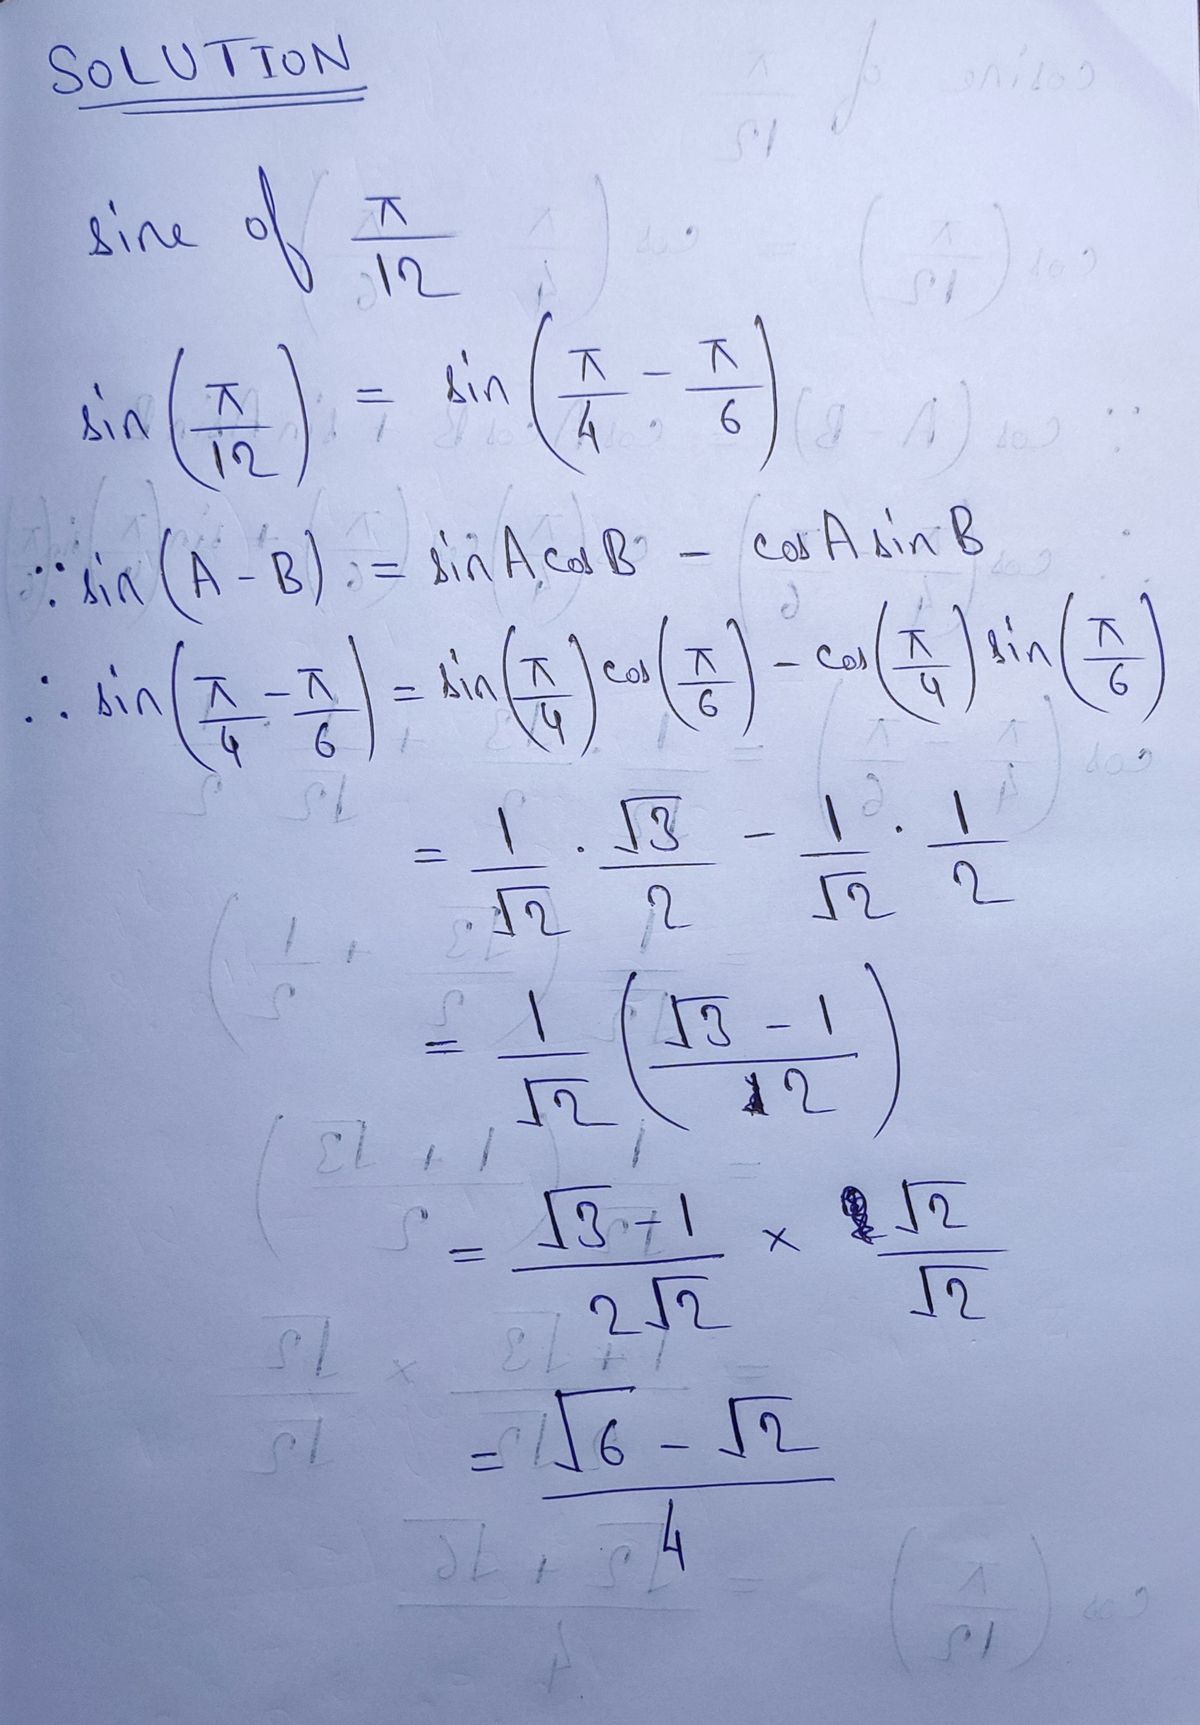 SOLUTION
sine of π/12
sin(π/12) = sin(π/4 - π/6)
∵ sin(A - B) = sinAcosB - cosAsinB
∴ sin(π/4 - π/6) = sin(π/4)cos(π/6) - cos(π/4)sin(π/6)
= 1/√2 · √3/2 - 1/√2 · 1/2
= 1/√2 ((√3 - 1)/2)
= (√3 - 1)/(2√2) × √2/√2
= (√6 - √2)/4